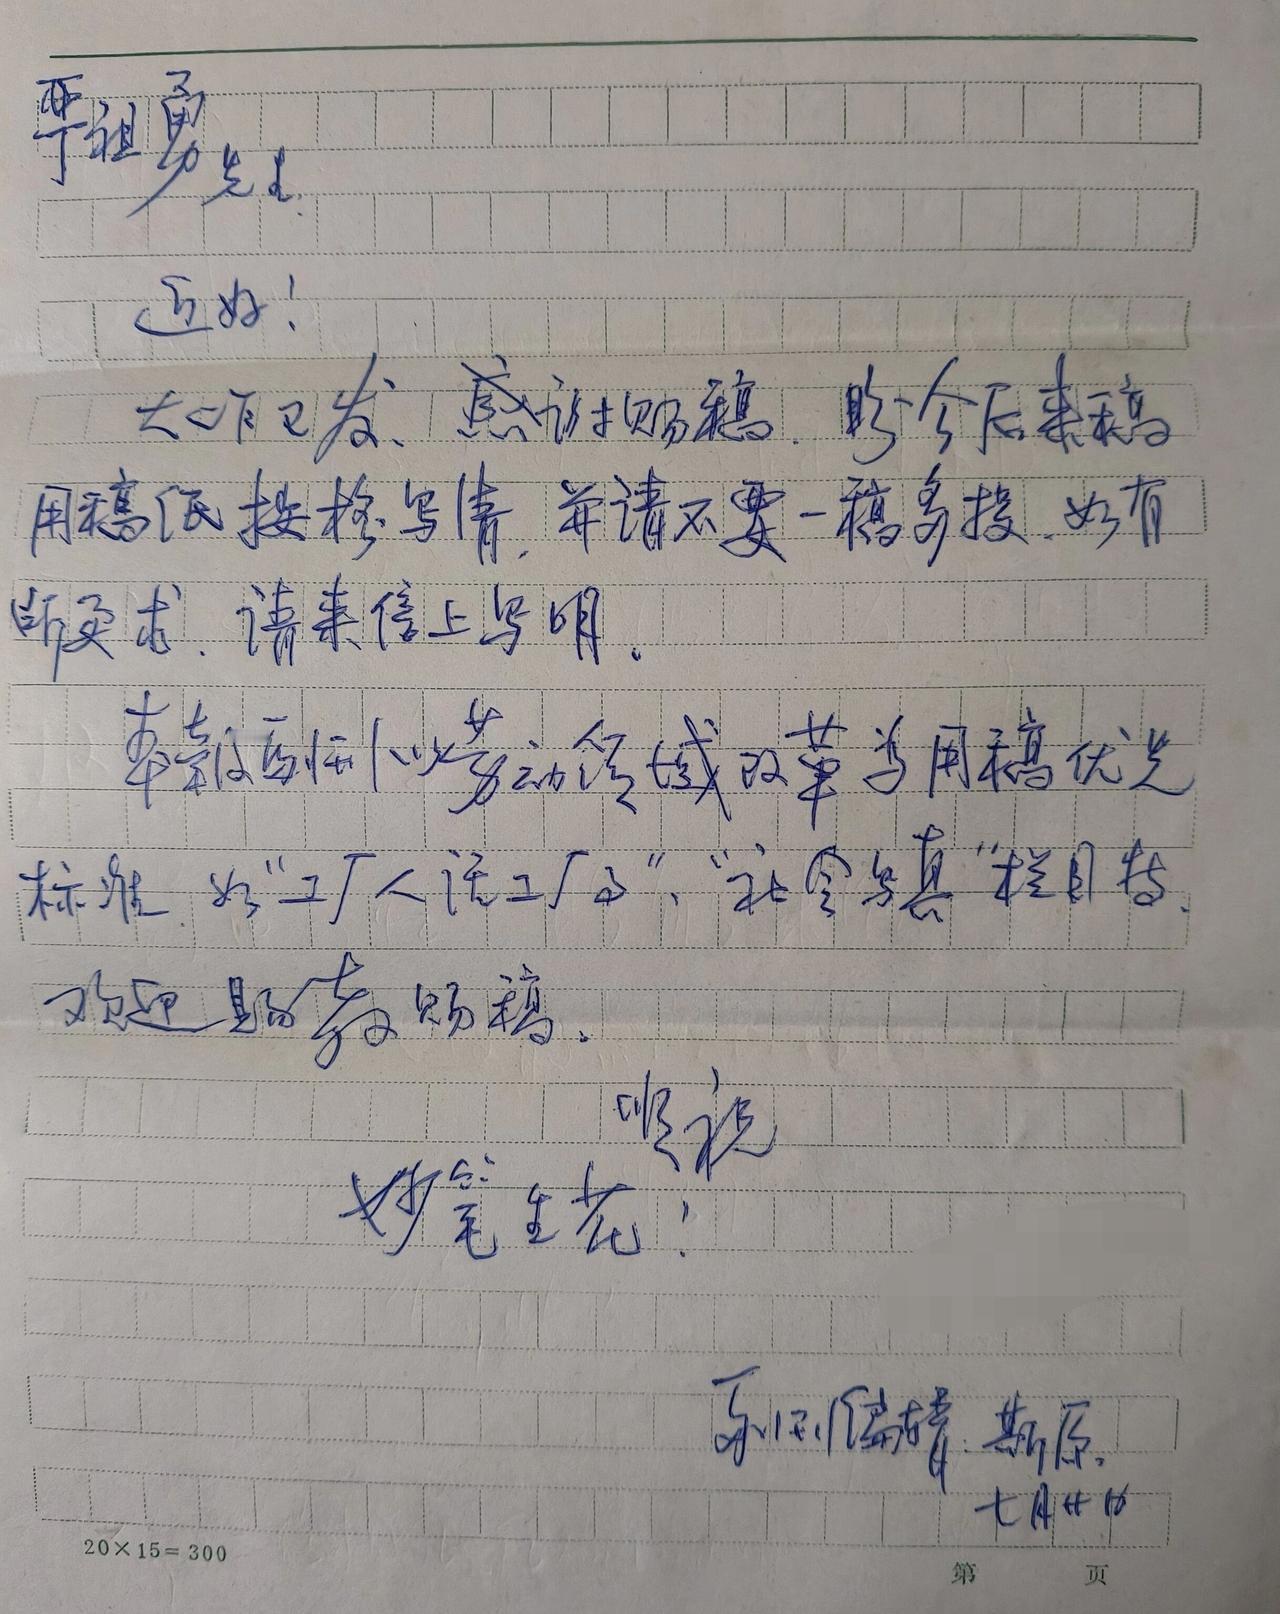 严祖勇先生：
近好！
大作已发、感谢赐稿。盼今后来稿
用稿纸按格写清，并请不要一稿多投。如有
要求，请来信上写明。
本报副刊以劳动领域改革为用稿优先
标准。如“工厂人话工厂事”、“社会写真”栏目特
欢迎赐稿。
顺祝
妙笔生花！
副刊编辑 斯原
七月廿
20×15=300
第 页